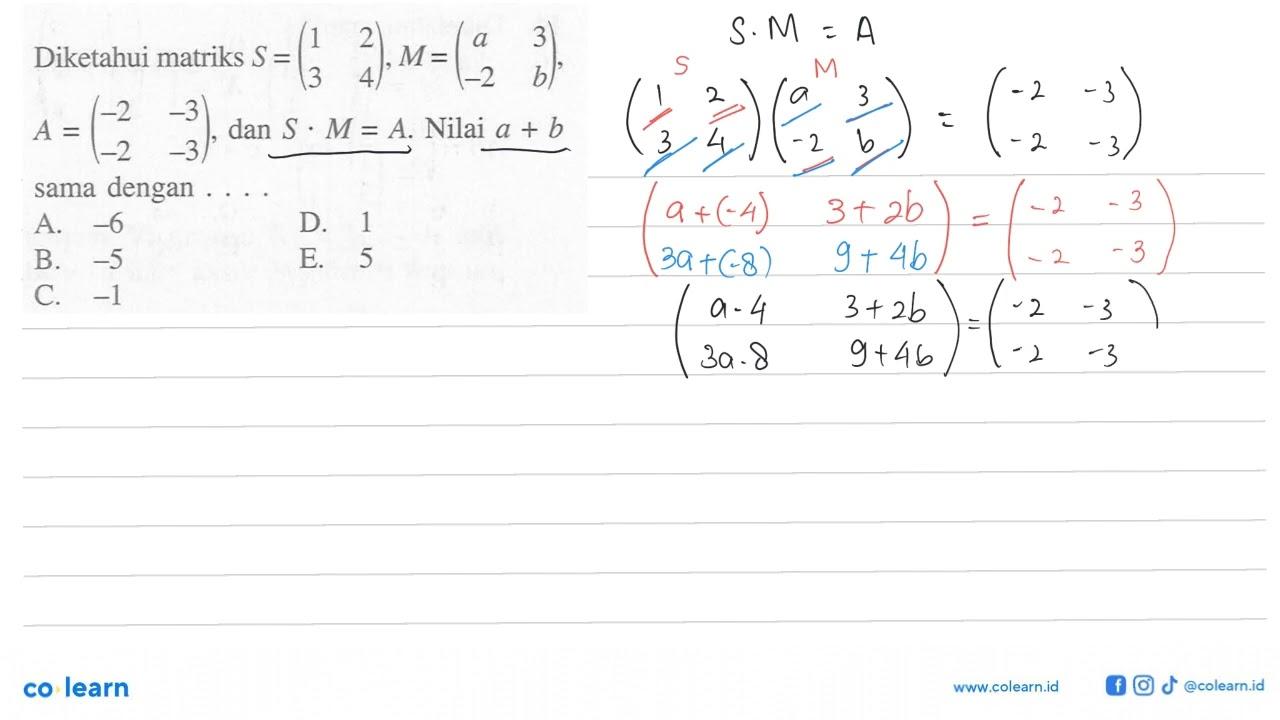 Diketahui matriks S = (1 2 3 4), M = (a 3 -2 b),
A = (-2 -3 -2 -3), dan S · M = A. Nilai a + b
sama dengan . . . .
A. -6 D. 1
B. -5 E. 5
C. -1
S . M = A
S M
(1 2 3 4) (a 3 -2 b) = (-2 -3 -2 -3)
(a + (-4) 3 + 2b 3a + (-8) 9 + 4b) = (-2 -3 -2 -3)
(a - 4 3 + 2b 3a - 8 9 + 4b) = (-2 -3 -2 -3)
co learn
www.colearn.id
@colearn.id